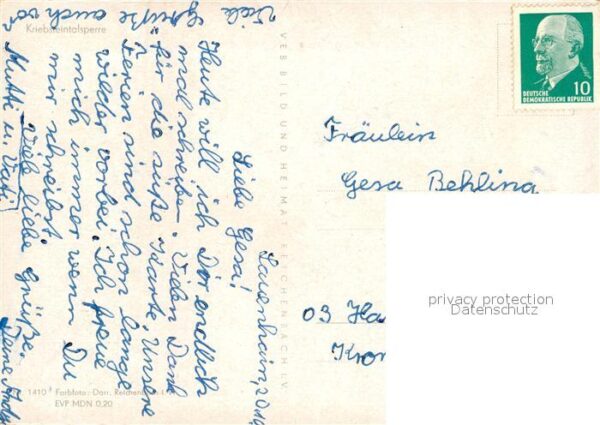 Kriebsteintalsperre
Lauenhain, 20.10.
Liebe Gesa!
Heute will ich Dir endlich
mal schreiben. Vielen Dank
für die süße Karte. Unsere
Ferien sind schon lange
wieder vorbei. Ich freue
mich immer wenn Du
mir schreibst.
Viele liebe Grüße.
Deine
Viele
Grüße auch von
Mutti u. Vati
VEB BILD UND HEIMAT REICHENBACH I. V.
1410 Farbfoto: Darr, Reichenbach
EVP MDN 0,20
10
DEUTSCHE
DEMOKRATISCHE REPUBLIK
Fräulein
Gesa Behling
03 Ha
Kron
privacy protection
Datenschutz